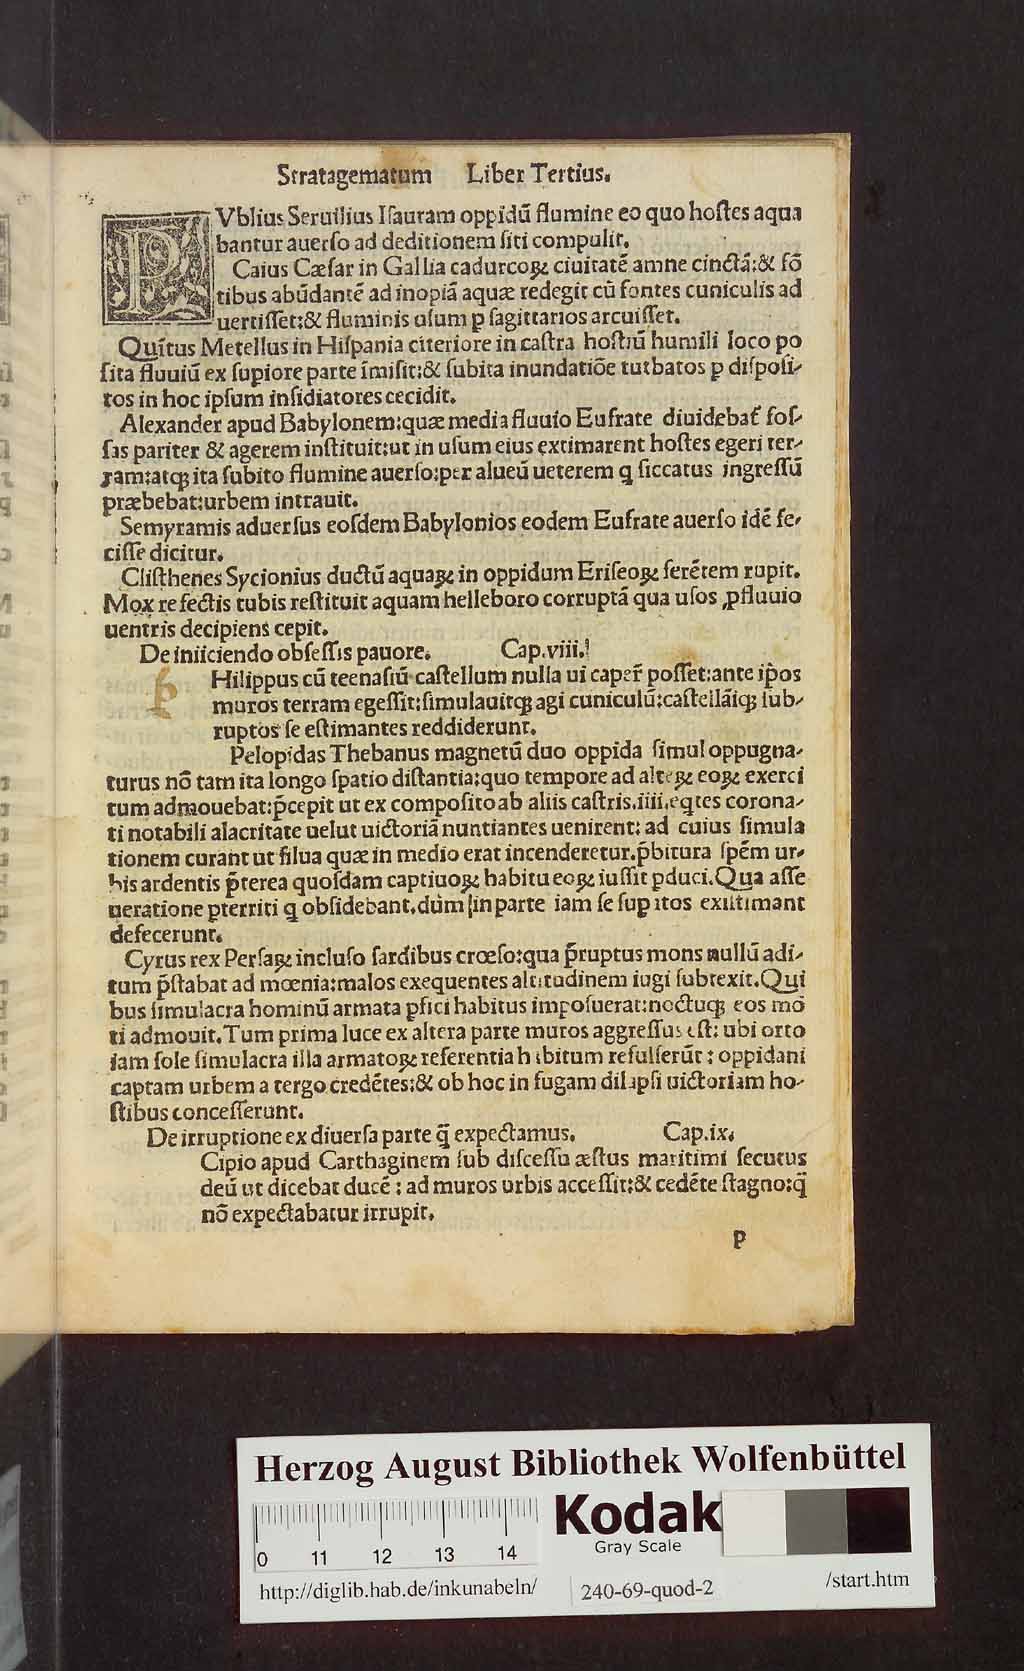 Stratagematum Liber Tertius.
PVblius Seruilius Iſauram oppidū flumine eo quo hoſtes aqua
bantur auerſo ad deditionem ſiti compulit.
Caius Cæſar in Gallia cadurcoꝝ ciuitatē amne cinctā:& fō
tibus abūdantē ad inopiā aquæ redegit cū fontes cuniculis ad
uertiſſet:& fluminis uſum p ſagittarios arcuiſſet.
Quītus Metellus in Hiſpania citeriore in caſtra hoſtiū humili loco po
ſita fluuiū ex ſupiore parte īmiſit:& ſubita inundatiōe tutbatos p diſpoſi-
tos in hoc ipſum inſidiatores cecidit.
Alexander apud Babylonem:quæ media fluuio Eufrate diuidebat̄ foſ-
ſas pariter & agerem inſtituit:ut in uſum eius extimarent hoſtes egeri ter-
ram:atqꝫ ita ſubito flumine auerſo:per alueū ueterem q ſiccatus ingreſſū
præbebat:urbem intrauit.
Semyramis aduerſus eoſdem Babylonios eodem Eufrate auerſo idē fe-
ciſſe dicitur.
Cliſthenes Sycionius ductū aquaꝝ in oppidum Eriſeoꝝ ferētem rupit.
Mox refectis tubis reſtituit aquam helleboro corruptā qua uſos ꝓfluuio
uentris decipiens cepit.
De iniiciendo obſeſſis pauore. Cap.viii.
Hilippus cū teenaſiū caſtellum nulla ui caper̄ poſſet:ante ip̄os
muros terram egeſſit:ſimulauitqꝫ agi cuniculū:caſtellāiqꝫ ſub-
ruptos ſe eſtimantes reddiderunt.
Pelopidas Thebanus magnetū duo oppida ſimul oppugna-
turus nō tam ita longo ſpatio diſtantia:quo tempore ad alteꝝ eoꝝ exerci
tum admouebat:p̄cepit ut ex compoſito ab aliis caſtris.iiii.eqtes corona-
ti notabili alacritate uelut uictoriā nuntiantes uenirent: ad cuius ſimula
tionem curant ut ſilua quæ in medio erat incenderetur.p̄bitura ſpēm ur-
bis ardentis p̄terea quoſdam captiuoꝝ habitu eoꝝ iuſſit pduci.Qua aſſe
ueratione pterriti q obſidebant.dum in parte iam ſe ſup itos exiſtimant
defecerunt.
Cyrus rex Perſaꝝ incluſo ſardibus crœſo:qua p̄ruptus mons nullū adi-
tum p̄ſtabat ad mœnia:malos exequentes altitudinem iugi ſubrexit.Qui
bus ſimulacra hominū armata pſici habitus impoſuerat:noctuqꝫ eos mō
ti admouit.Tum prima luce ex altera parte muros aggreſſus eſt: ubi orto
iam ſole ſimulacra illa armatoꝝ referentia habitum refulſerūt : oppidani
captam urbem a tergo credētes:& ob hoc in fugam dilapſi uictoriam ho-
ſtibus conceſſerunt.
De irruptione ex diuerſa parte q̄ expectamus. Cap.ix.
Cipio apud Carthaginem ſub diſceſſu æſtus maritimi ſecutus
deū ut dicebat ducē : ad muros urbis acceſſit:& cedēte ſtagno:q̄
nō expectabatur irrupit.
P
Herzog August Bibliothek Wolfenbüttel
0 11 12 13 14
Kodak
Gray Scale
http://diglib.hab.de/inkunabeln/ 240-69-quod-2 /start.htm